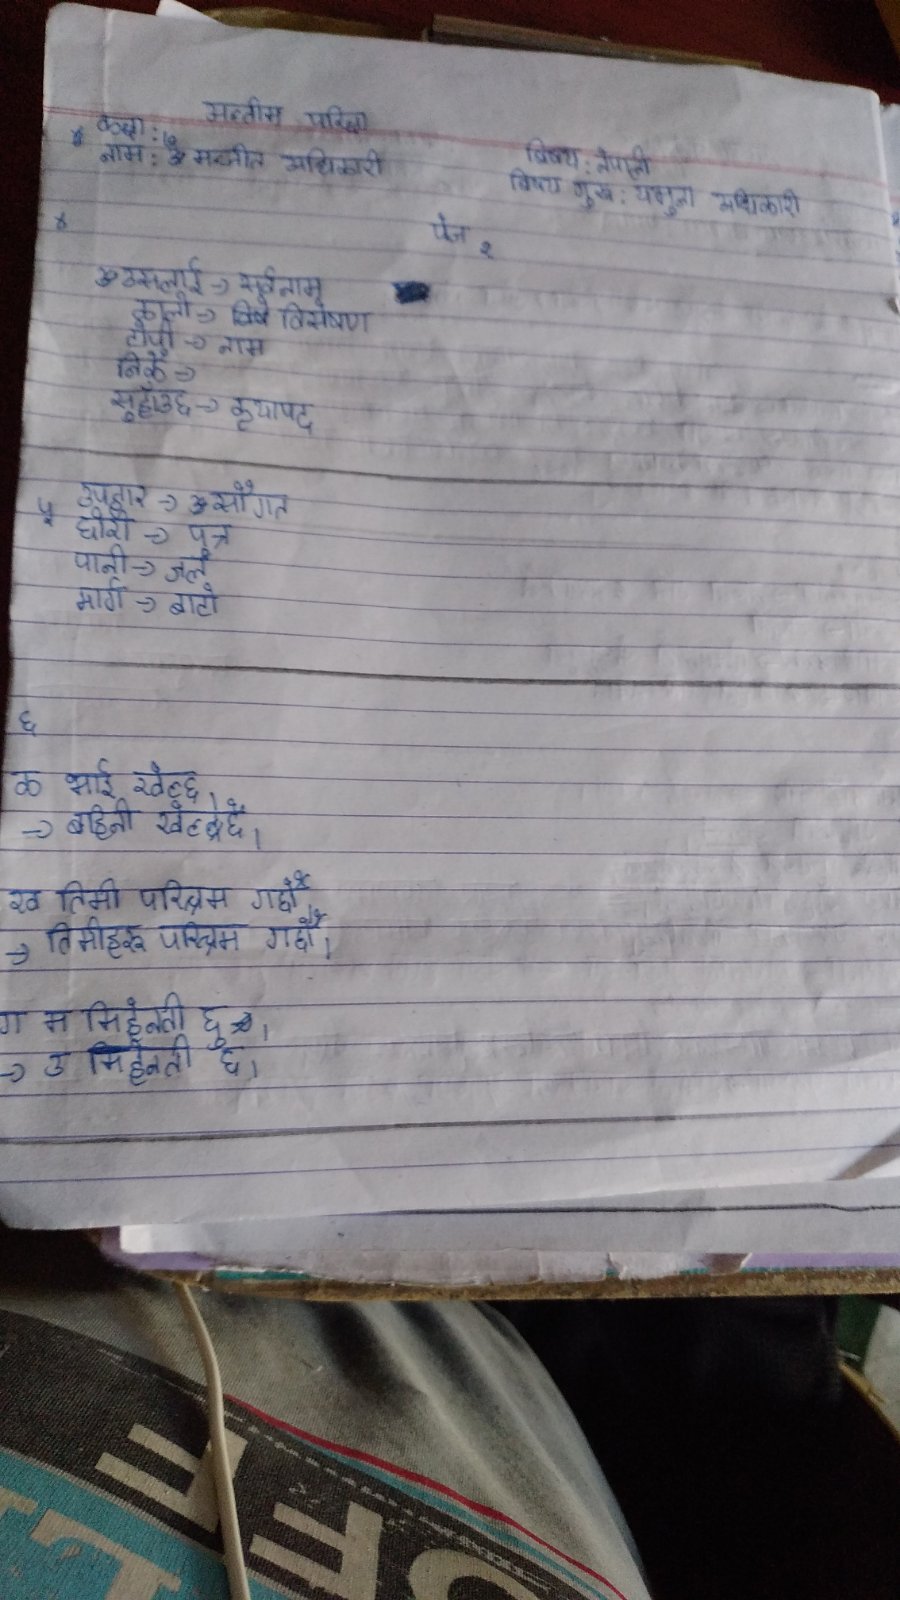 कक्षा:
नाम: मञ्जीत अधिकारी
विषय: नेपाली
विषय गुरु: यमुना अधिकारी
पेज २
४
उसलाई → सर्वनाम
काली → विशेषण
टोपी → नाम
निकै →
सुहाउछ → कृयापद
५
उपहार → सौगात
छोरा → पुत्र
पानी → जल
मार्ग → बाटो
६
क भाई खेल्छ।
→ बहिनी खेल्छे।
ख तिमी परिश्रम गर्छौ
→ तिमीहरु परिश्रम गर्छौ।
ग म मिहेनती छु।
→ उ मिहेनती छ।